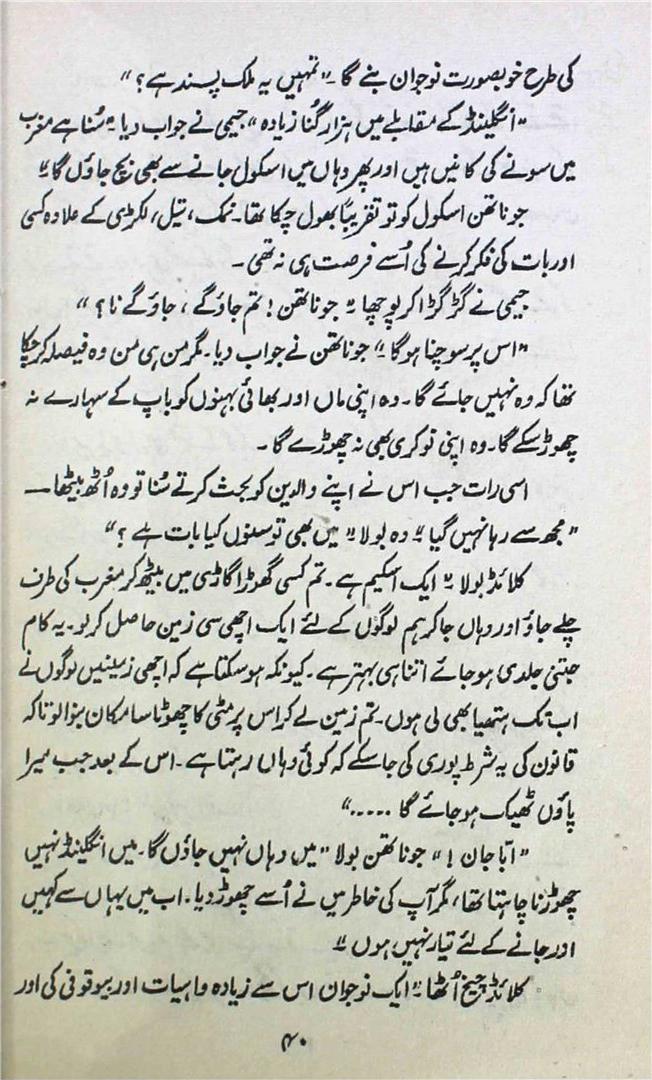 کی طرح خوبصورت نوجوان بنے گا۔" تمہیں یہ ملک پسند ہے؟"
"انگلینڈ کے مقابلے میں ہزار گنا زیادہ" جیمی نے جواب دیا۔ "سُنا ہے مغرب
میں سونے کی کانیں ہیں اور پھر وہاں میں اسکول جانے سے بھی بچ جاؤں گا۔"
جوناتھن اسکول کو تو تقریباً بھول چکا تھا۔ نمک، تیل، لکڑی کے علاوہ کسی
اور بات کی فکر کرنے کی اُسے فرصت ہی نہ تھی۔
جیمی نے گڑگڑا کر پوچھا۔ "جوناتھن! تم جاؤ گے، جاؤ گے نا؟"
"اس پر سوچنا ہوگا۔" جوناتھن نے جواب دیا۔ مگر من ہی من وہ فیصلہ کر چکا
تھا کہ وہ نہیں جائے گا۔ وہ اپنی ماں اور بھائی بہنوں کو باپ کے سہارے نہ
چھوڑ سکے گا۔ وہ اپنی نوکری بھی نہ چھوڑے گا۔
اسی رات جب اس نے اپنے والدین کو بحث کرتے سُنا تو وہ اُٹھ بیٹھا —
"مجھ سے رہا نہیں گیا" وہ بولا۔ "میں بھی تو سنوں کیا بات ہے؟"
کلائڈ بولا۔ "ایک اسکیم ہے۔ تم کسی گھوڑا گاڑی میں بیٹھ کر مغرب کی طرف
چلے جاؤ اور وہاں جا کر ہم لوگوں کے لئے ایک اچھی سی زمین حاصل کر لو۔ یہ کام
جتنی جلدی ہو جائے اتنا ہی بہتر ہے۔ کیونکہ ہو سکتا ہے کہ اچھی زمینیں لوگوں نے
اب تک ہتھیا بھی لی ہوں۔ تم زمین لے کر اس پر مٹی کا چھوٹا سا مکان بنوا لو تاکہ
قانون کی یہ شرط پوری کی جا سکے کہ کوئی وہاں رہتا ہے۔ اس کے بعد جب میرا
پاؤں ٹھیک ہو جائے گا ....."
"ابا جان!" جوناتھن بولا "میں وہاں نہیں جاؤں گا۔ میں انگلینڈ نہیں
چھوڑنا چاہتا تھا، مگر آپ کی خاطر میں نے اُسے چھوڑ دیا۔ اب میں یہاں سے کہیں
اور جانے کے لئے تیار نہیں ہوں۔"
کلائڈ چیخ اُٹھا۔ "ایک نوجوان اس سے زیادہ واہیات اور بیوقوفی کی اور
۴۰